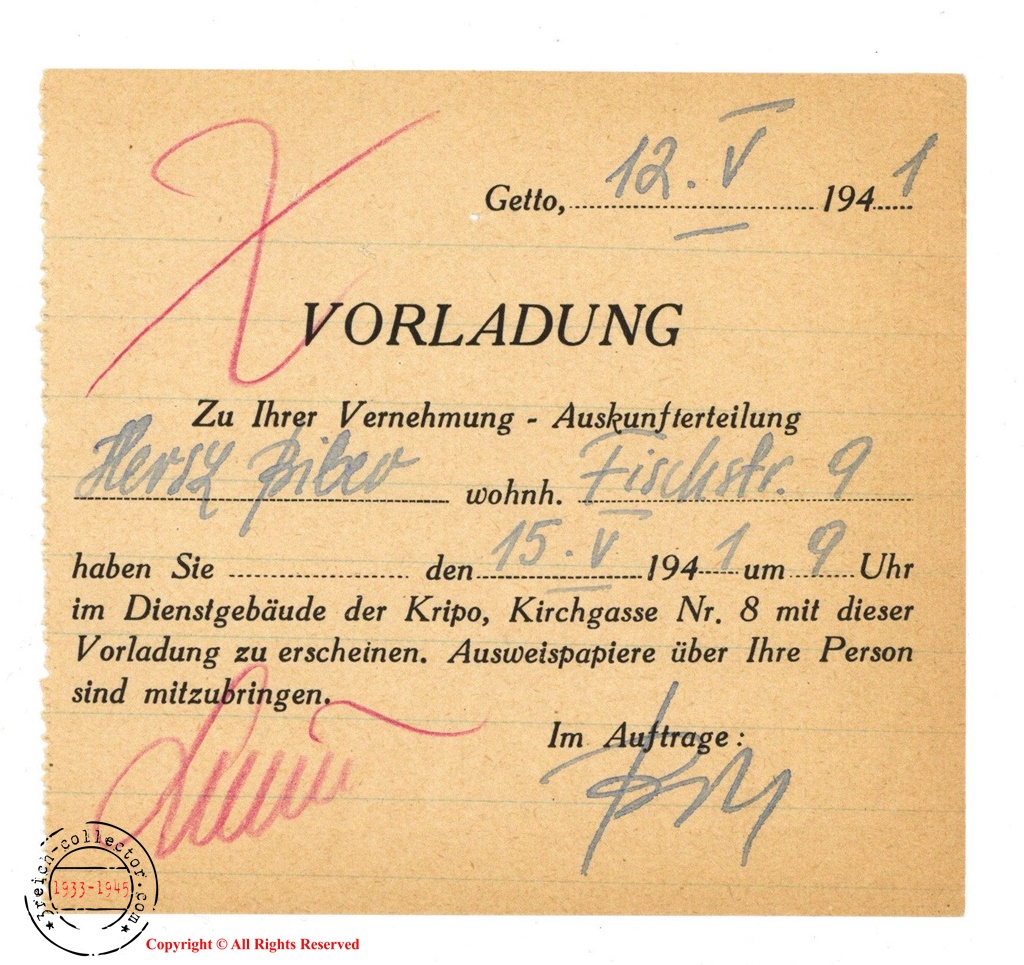 Getto, 12. V 1941
VORLADUNG
Zu Ihrer Vernehmung - Auskunfterteilung
Hersz wohnh. Fischstr. 9
haben Sie den 15. V 1941 um 9 Uhr
im Dienstgebäude der Kripo, Kirchgasse Nr. 8 mit dieser
Vorladung zu erscheinen. Ausweispapiere über Ihre Person
sind mitzubringen.
Im Auftrage:
3reich-collector.com
1933-1945
Copyright © All Rights Reserved